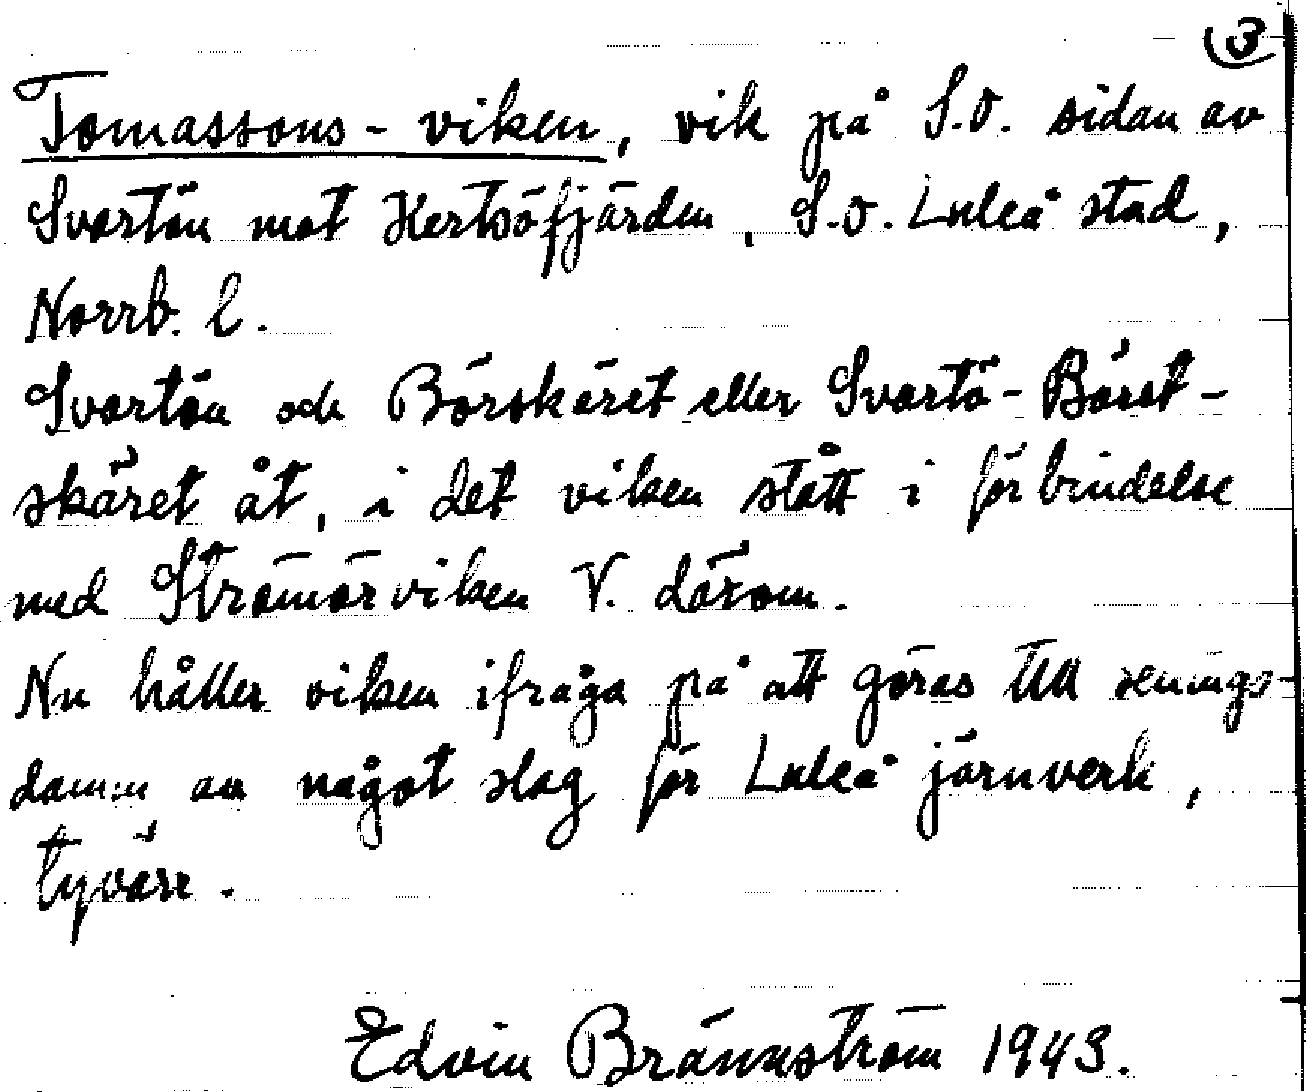 3
Tomassons-viken, vik på S.O. sidan av
Svartön mot Hertsöfjärden, S.O. Luleå stad,
Norrb. l.
Svartön och Börskäret eller Svartö-Börst-
skäret åt, i det viken stått i förbindelse
med Strömörviken V. därom.
Nu håller viken ifråga på att göras till renings-
damm av något slag för Luleå järnverk,
tyvärr.
Edvin Brännström 1943.